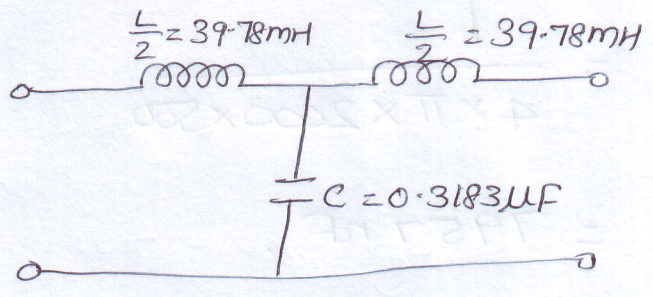 L/2 = 39.78mH
L/2 = 39.78mH
C = 0.3183µF